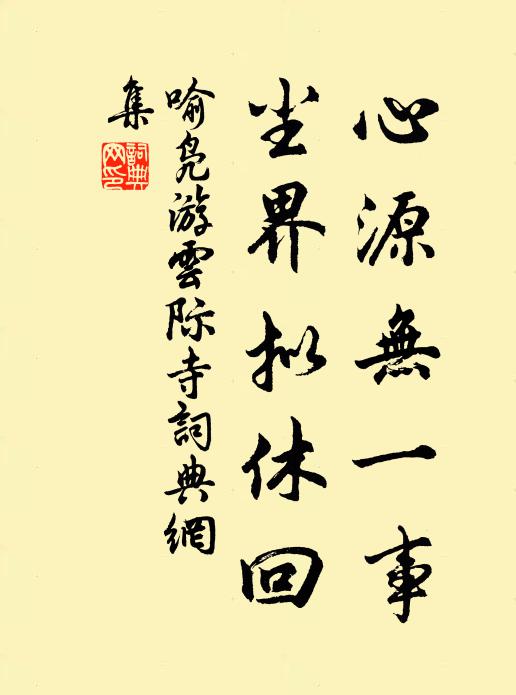 心源無一事
尘界拟休回
喻凫游雲际寺詞典網
集
詞典網印